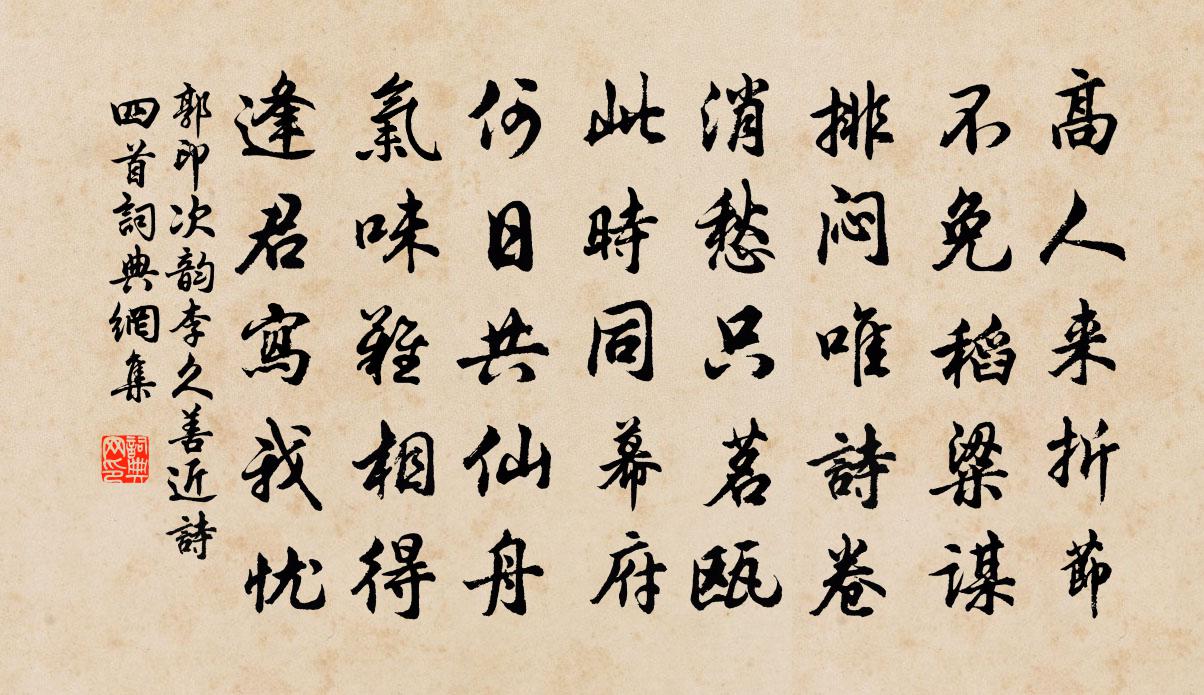 高人来折節
不免稻粱謀
排闷唯詩卷
消愁只茗瓯
此時同幕府
何日共仙舟
氣味難相得
逢君寫我忧
郭印次韵李久善近詩
四首詞典網集
詞典网印